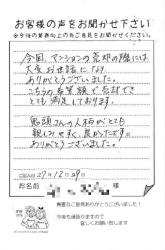 お客様の声をお聞かせ下さい
今回、マンションの売却の際には
大変お世話になり
ありがとうございました。
こちらの希望額で売却でき
とても満足しております。
鬼頭さんの人柄がとても
親しみやすく、良かったです。
ありがとうございました。
ご記入日 27年12月29日
お名前 様
貴重なご意見ありがとうございました!
今後も頑張りますので
宜しくお願い致します